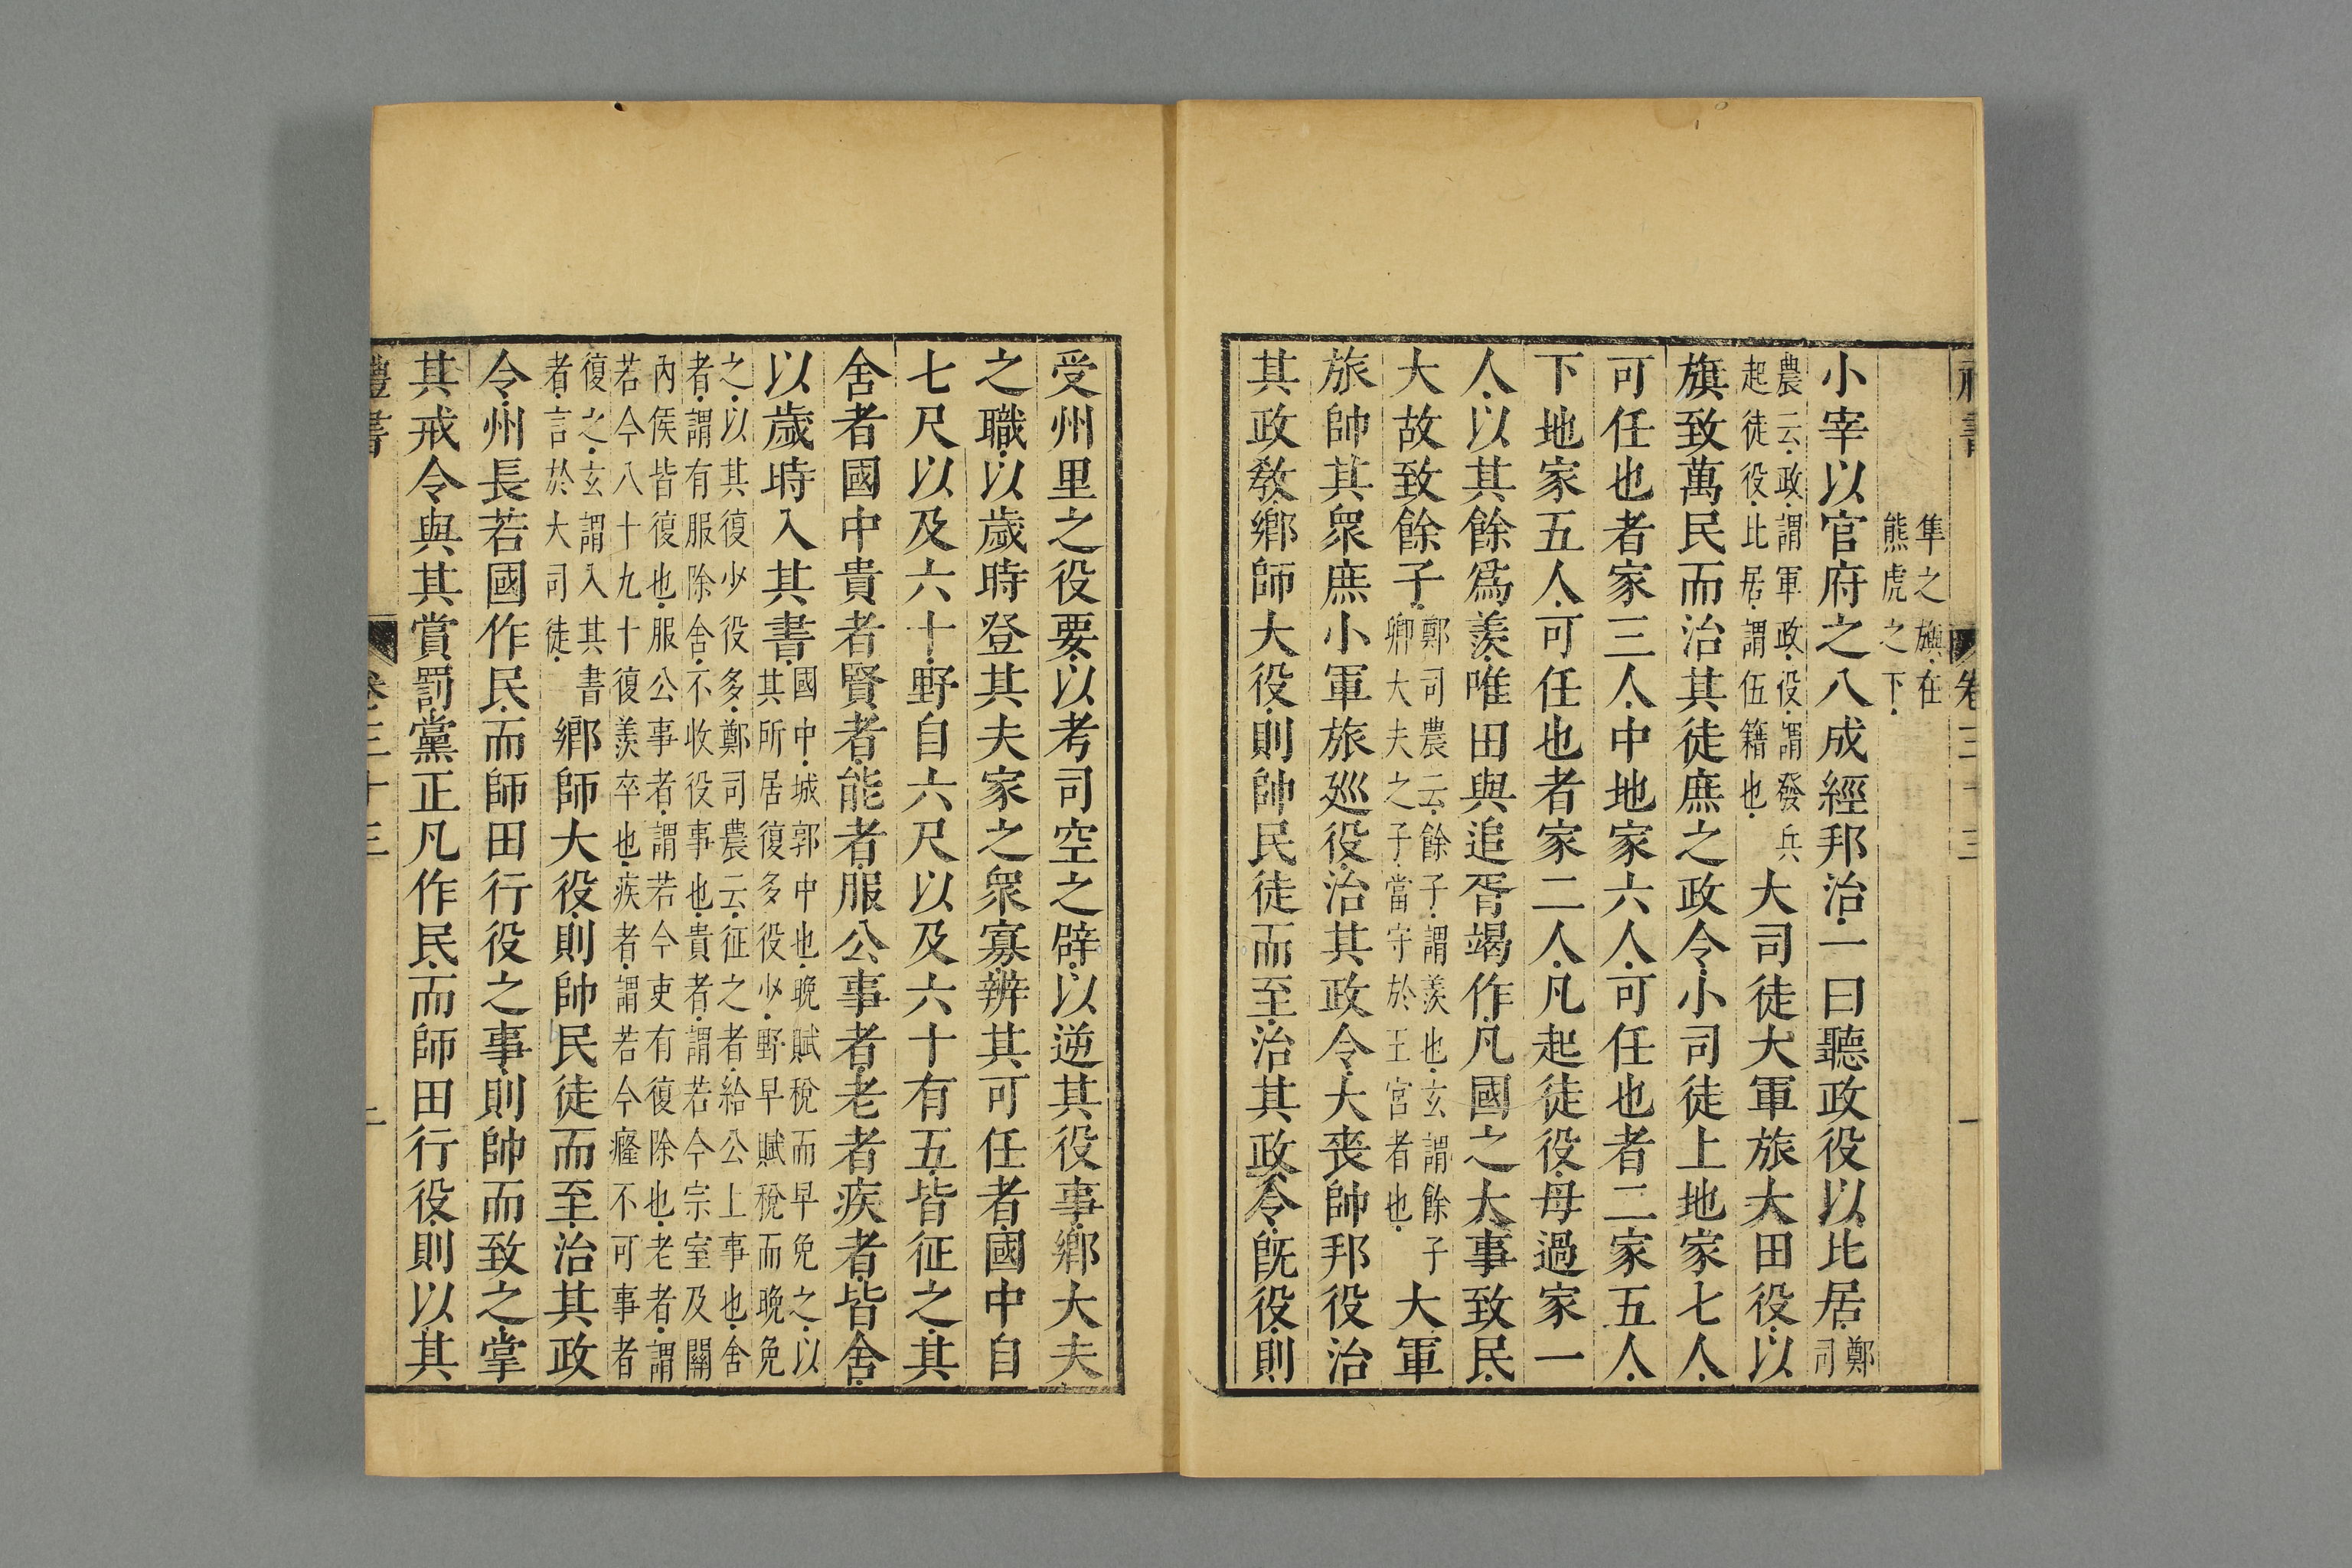 禮書 卷三十三 一
隼之旟在
熊虎之下
小宰以官府之八成經邦治一曰聽政役以比居鄭
司
農云政謂軍政役謂發兵
起徒役比居謂伍籍也
大司徒大軍旅大田役以
旗致萬民而治其徒庶之政令小司徒上地家七人
可任也者家三人中地家六人可任也者二家五人
下地家五人可任也者家二人凡起徒役毋過家一
人以其餘爲羨唯田與追胥竭作凡國之大事致民
大故致餘子
鄭司農云餘子謂羨也玄謂餘子
卿大夫之子當守於王宮者也
大軍
旅帥其衆庶小軍旅巡役治其政令大喪帥邦役治
其政教鄉師大役則帥民徒而至治其政令旣役則
受州里之役要以考司空之辟以逆其役事鄉大夫
之職以歲時登其夫家之衆寡辨其可任者國中自
七尺以及六十野自六尺以及六十有五皆征之其
舍者國中貴者賢者能者服公事者老者疾者皆舍
以歲時入其書
國中城郭中也晚賦稅而早免之以
其所居復多役少野早賦稅而晚免
之以其復少役多鄭司農云征之者給公上事也舍
者謂有服除舍不收役事也貴者謂若今宗室及關
內侯皆復也服公事者謂若今吏有復除也老者謂
若今八十九十復羨卒也疾者謂若今癃不可事者
復之玄謂入其書
者言於大司徒
鄉師大役則帥民徒而至治其政
令州長若國作民而師田行役之事則帥而致之掌
其戒令與其賞罰黨正凡作民而師田行役則以其
禮書 卷三十三 二